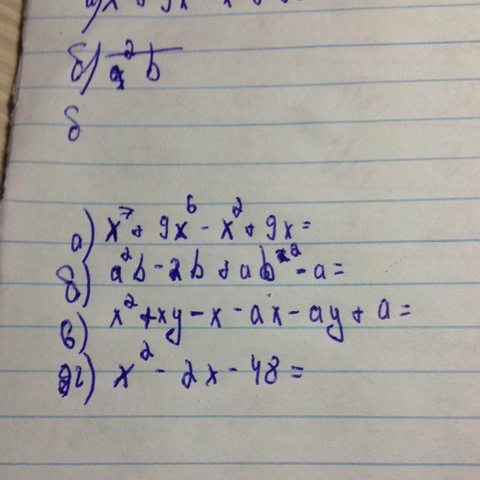 б) a²b
б
а) x⁷ + 9x⁶ - x² + 9x =
б) a²b - 2b + ab² - a =
в) x² + xy - x - ax - ay + a =
г) x² - 2x - 48 =